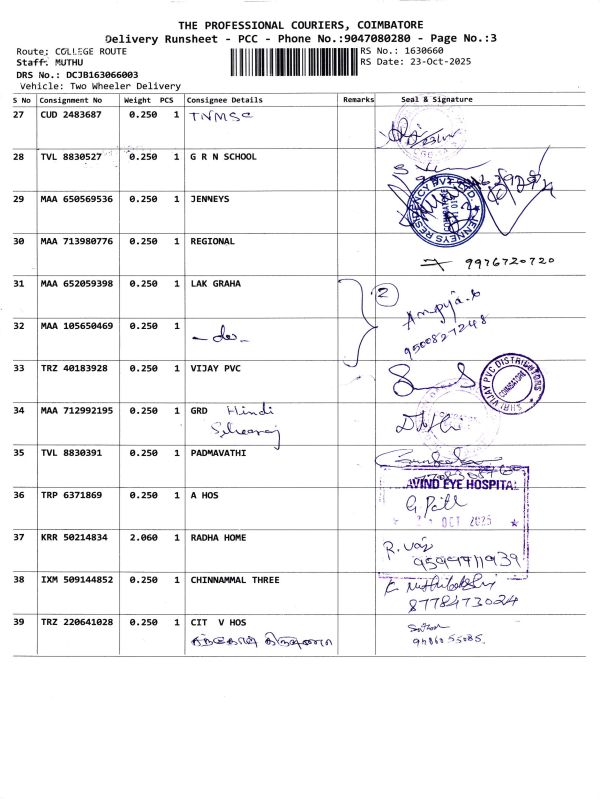 THE PROFESSIONAL COURIERS, COIMBATORE
Delivery Runsheet - PCC - Phone No.:9047080280 - Page No.:3
Route: COLLEGE ROUTE RS No.: 1630660
Staff: MUTHU RS Date: 23-Oct-2025
DRS No.: DCJB163066003
Vehicle: Two Wheeler Delivery
S No Consignment No Weight PCS Consignee Details Remarks Seal & Signature
27 CUD 2483687 0.250 1 TNMSC
28 TVL 8830527 0.250 1 G R N SCHOOL
29 MAA 650569536 0.250 1 JENNEYS
JENNEYS RESIDENCY PVT. LTD. COIMBATORE
30 MAA 713980776 0.250 1 REGIONAL
9976720720
31 MAA 652059398 0.250 1 LAK GRAHA 2
32 MAA 105650469 0.250 1 - do -
9500827248
33 TRZ 40183928 0.250 1 VIJAY PVC
SHRI VIJAY PVC DISTRIBUTORS COIMBATORE
34 MAA 712992195 0.250 1 GRD Hindi
35 TVL 8830391 0.250 1 PADMAVATHI
36 TRP 6371869 0.250 1 A HOS
AVIND EYE HOSPITAL
OCT 2025
37 KRR 50214834 2.060 1 RADHA HOME
38 IXM 509144852 0.250 1 CHINNAMMAL THREE
8778473024
39 TRZ 220641028 0.250 1 CIT V HOS
9486055085.